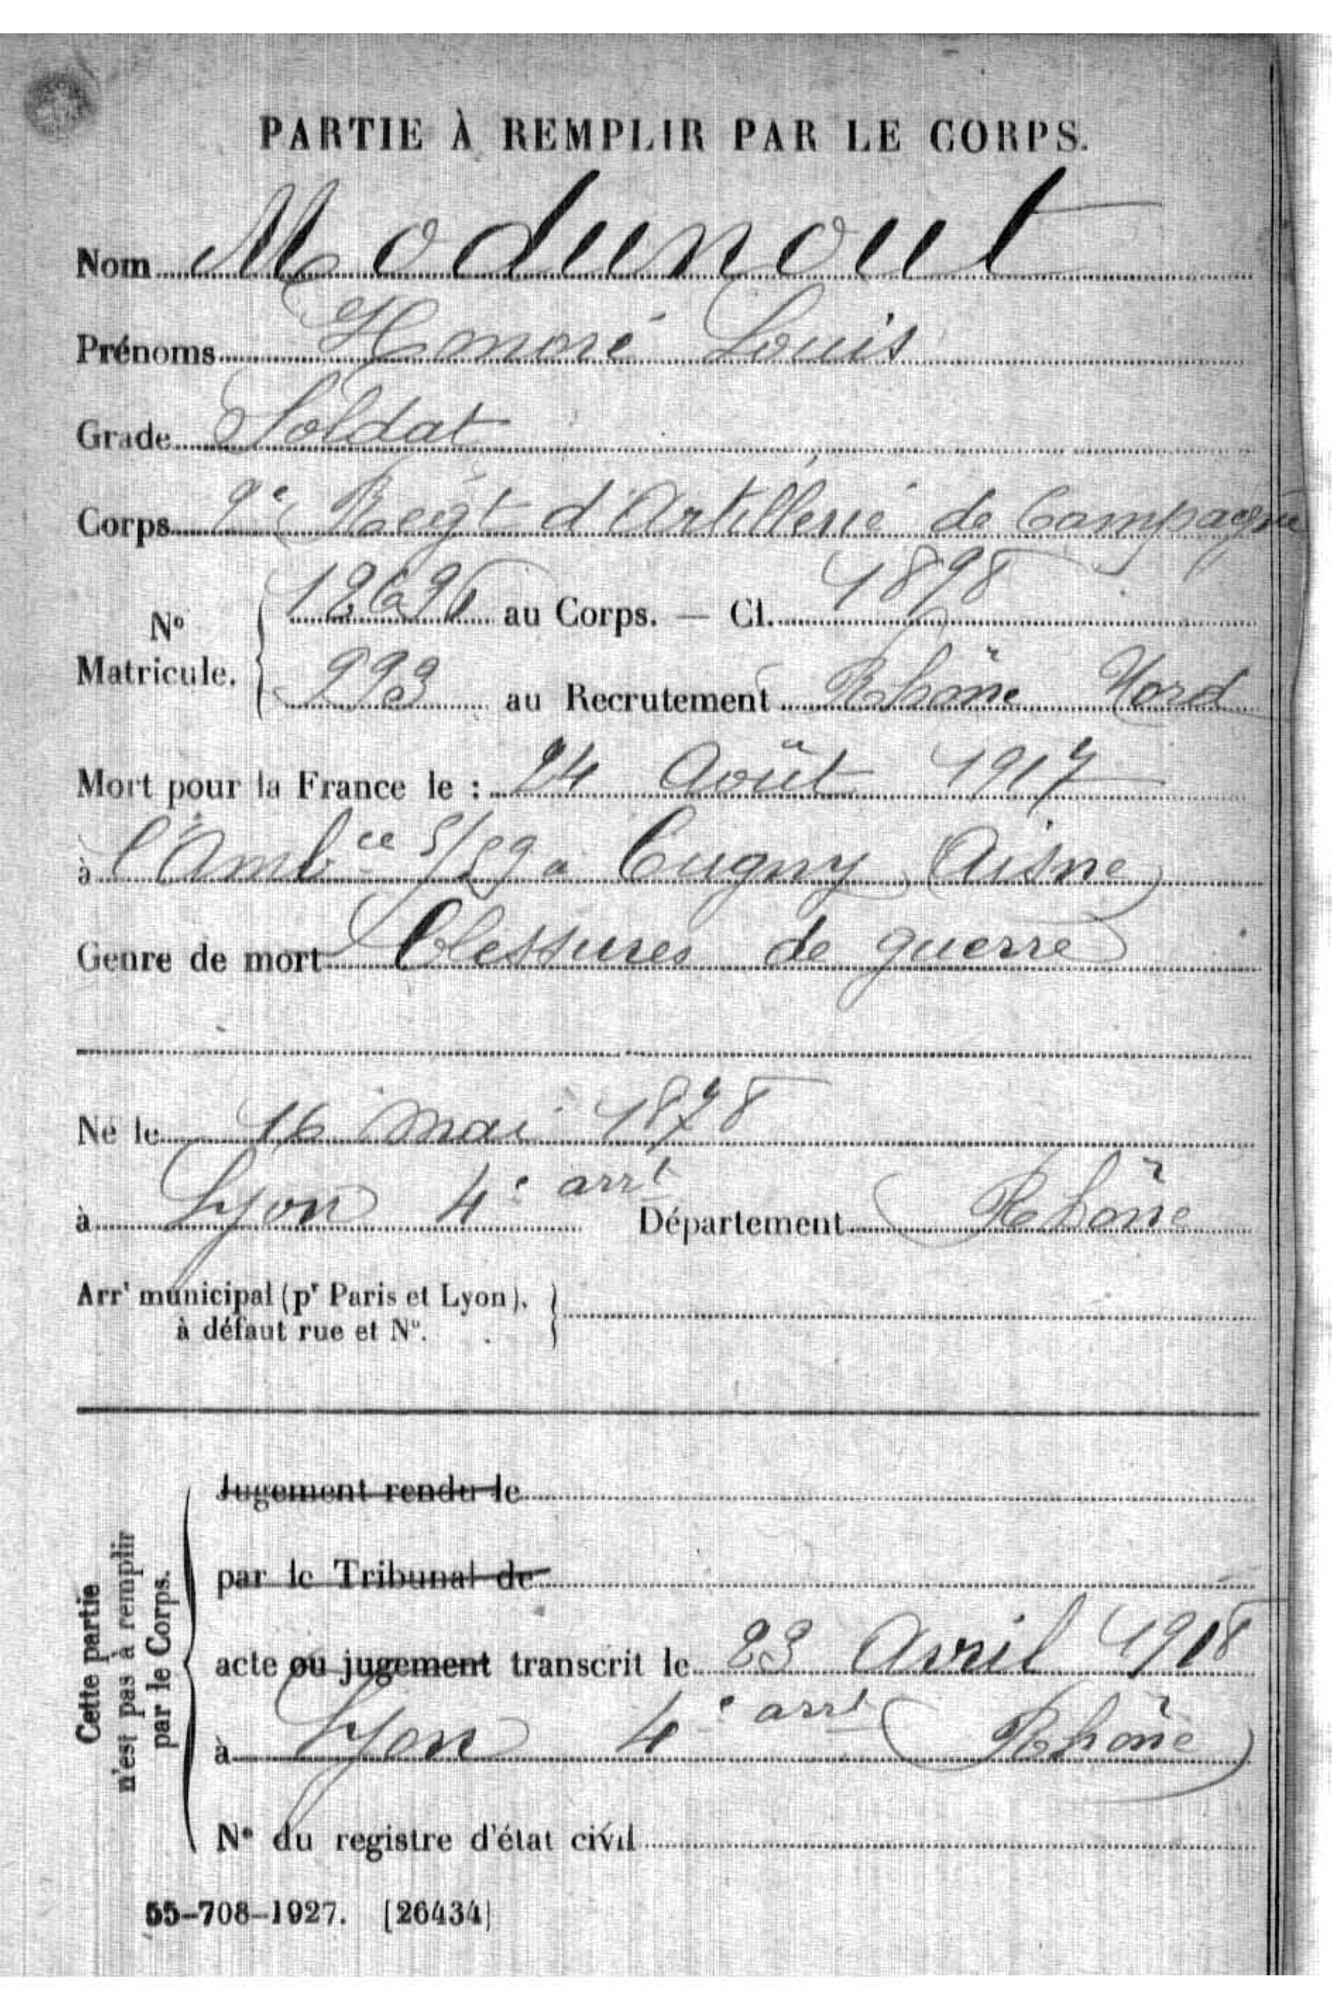 PARTIE À REMPLIR PAR LE CORPS.
Nom Modunout
Prénoms Honoré Louis
Grade Soldat
Corps 9e Regt d'Artillerie de Campagne
No Matricule. 12696 au Corps. — Cl. 1898
993 au Recrutement Rhône Nord
Mort pour la France le : 24 Août 1917
à l'Ambce 5/59 à Cugny (Aisne)
Genre de mort Blessures de guerre
Né le 16 mai 1878
à Lyon 4e arrt Département Rhône
Arrt municipal (pr Paris et Lyon),
à défaut rue et No.
Cette partie
n'est pas à remplir
par le Corps.
Jugement rendu le
par le Tribunal de
acte ou jugement transcrit le 23 Avril 1918
à Lyon 4e arrt (Rhône)
No du registre d'état civil
55-708-1927. [26434]